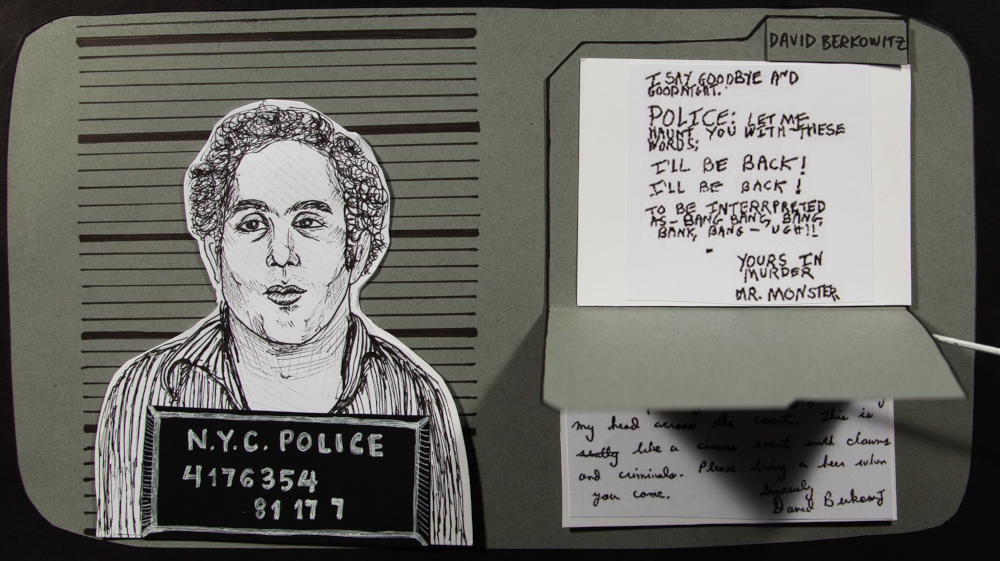 N.Y.C. POLICE
4176354
81177
DAVID BERKOWITZ
I SAY GOODBYE AND
GOODNIGHT.
POLICE: LET ME
HAUNT YOU WITH THESE
WORDS;
I'LL BE BACK!
I'LL BE BACK!
TO BE INTERRPRETED
AS - BANG BANG, BANG,
BANK, BANG - UGH!!
YOURS IN
MURDER
MR. MONSTER
my head across the court. This is
like a circus event with clowns
and criminals. Please bring a beer when
you come.
Sincerely
David Berkowitz